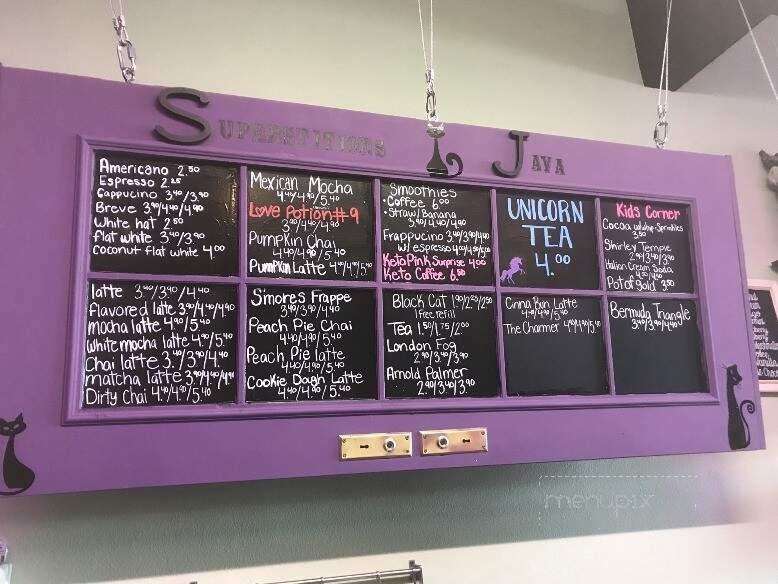 SUPERSTITIONS JAVA
Americano 2.50
Espresso 2.25
Cappucino 3.40/3.90
Breve 3.90/4.40/4.90
White hat 2.50
flat white 3.40/3.90
coconut flat white 4.00
Mexican Mocha
4.40/4.90/5.40
Love Potion #9
3.90/4.40/4.90
Pumpkin Chai
4.40/4.90/5.40
Pumpkin Latte 4.40/4.90/5.40
Smoothies
•Coffee 6.00
•Straw/Banana
3.90/4.40/4.90
Frappucino 3.40/3.90/4.40
w/espresso 4.40/4.90/5.40
Keto Pink Surprise 4.00
Keto Coffee 6.50
UNICORN
TEA
4.00
Kids Corner
Cocoa w/whip+Sprinkles
3.50
Shirley Temple
2.90/3.40/3.90
Italian Cream Soda
Pot of gold 3.50
latte 3.40/3.90/4.40
flavored latte 3.90/4.40/4.90
mocha latte 4.40/4.90/5.40
White mocha latte 4.40/4.90/5.40
Chai latte 3.40/3.90/4.40
matcha latte 3.90/4.40/4.90
Dirty Chai 4.40/4.90/5.40
S'mores Frappe
3.40/3.90/4.40
Peach Pie Chai
4.40/4.90/5.40
Peach Pie latte
4.40/4.90/5.40
Cookie Dough Latte
4.40/4.90/5.40
Black Cat 1.90/2.25/2.50
1 free refill
Tea 1.50/1.75/2.00
London Fog
2.90/3.40/3.90
Arnold Palmer
2.90/3.40/3.90
Cinna Bun Latte
4.40/4.90/5.40
The Charmer 4.40/4.90/5.40
Bermuda Triangle
3.40/3.90/4.40
menupix